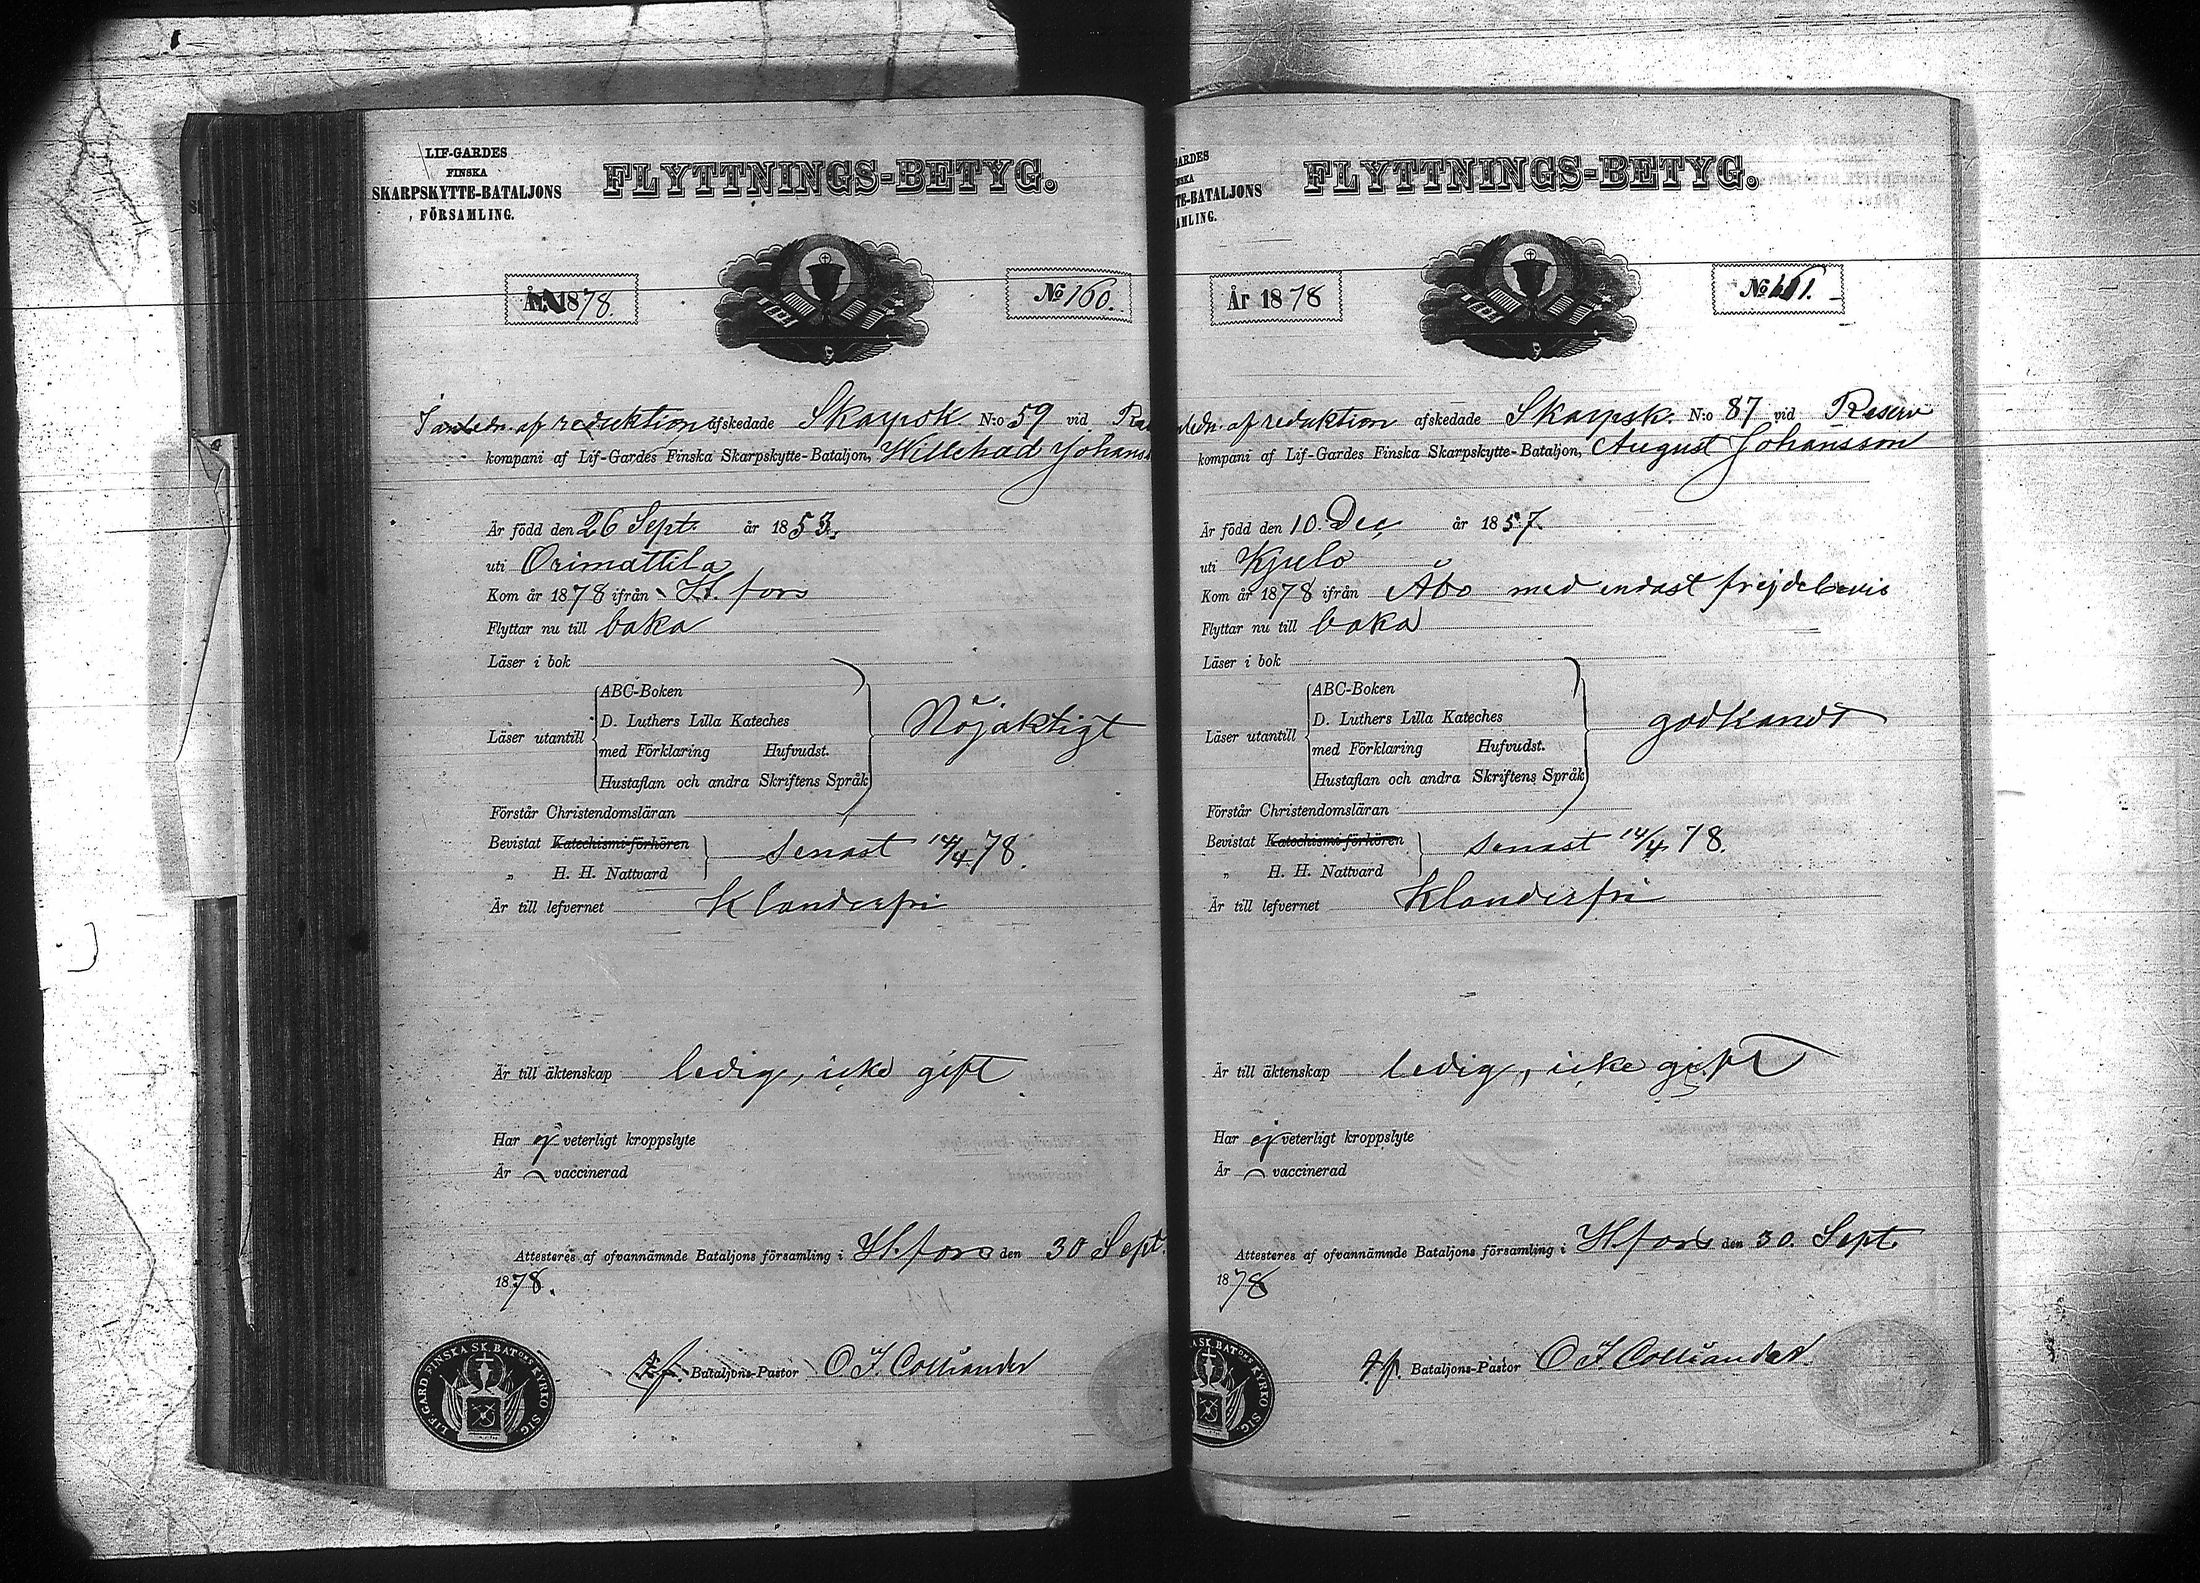 LIF-GARDES
FINSKA
SKARPSKYTTE-BATALJONS
FÖRSAMLING.
FLYTTNINGS-BETYG.
År 1878.
No 160.
I anledn. af reduktion afskedade Skarpsk. N:o 59 vid
kompani af Lif-Gardes Finska Skarpskytte-Bataljon, Willehad Johans
Är född den 26 Sept. år 1853.
uti Orimattila
Kom år 1878 ifrån H.fors
Flyttar nu till baka
Läser i bok
Läser utantill
ABC-Boken
D. Luthers Lilla Kateches
med Förklaring Hufvudst.
Hustaflan och andra Skriftens Språk
Nöjaktigt
Förstår Christendomsläran
Bevistat Katechismi-förhören
„ H. H. Nattvard
senast 14/4 78.
Är till lefvernet Klanderfri
Är till äktenskap ledig, icke gift
Har ej veterligt kroppslyte
Är vaccinerad
Attesteres af ofvannämnde Bataljons församling i H.fors den 30 Sept.
1878.
LIF-GARD FINSKA SK. BATons KYRKO SIG.
t.f. Bataljons-Pastor O F Colliander
ARDES
NSKA
TE-BATALJONS
AMLING.
FLYTTNINGS-BETYG.
År 1878
No 161.
nledn. af reduktion afskedade Skarpsk. N:o 87 vid Reserv
kompani af Lif-Gardes Finska Skarpskytte-Bataljon, August Johansson
Är född den 10. Dec. år 1857.
uti Kjulo
Kom år 1878 ifrån Åbo med endast frejdebevis
Flyttar nu till baka
Läser i bok
Läser utantill
ABC-Boken
D. Luthers Lilla Kateches
med Förklaring Hufvudst.
Hustaflan och andra Skriftens Språk
godkändt
Förstår Christendomsläran
Bevistat Katechismi-förhören
„ H. H. Nattvard
senast 14/4 78.
Är till lefvernet Klanderfri
Är till äktenskap ledig, icke gift
Har ej veterligt kroppslyte
Är vaccinerad
Attesteres af ofvannämnde Bataljons församling i H.fors den 30. Sept.
1878
A SK. BATons KYRKO SIG.
t.f. Bataljons-Pastor O F Colliander.